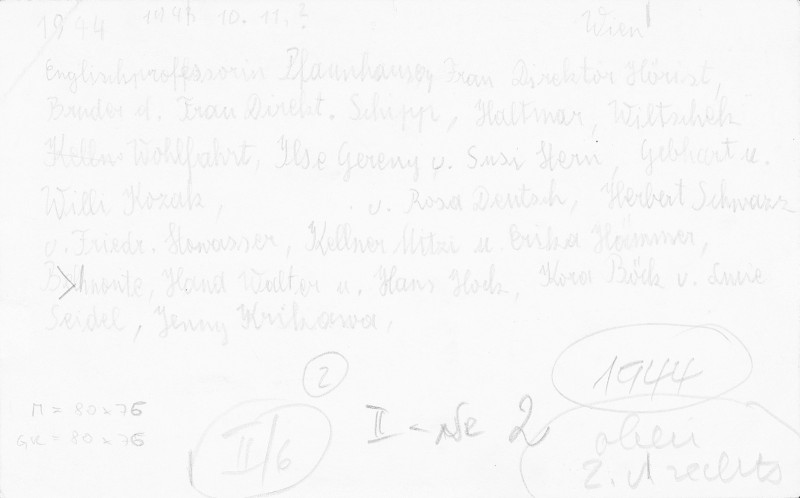 1944 1943 10. 11. ? Wien
Englischprofessorin Pfaunhauser, Frau Direktor Hörist,
Bruder u. Frau Direkt. Schipp, Haltmar, Wiltschek
Wohlfahrt, Ilse Gereny u. Susi Stern, Gebhart u.
Willi Kozak, u. Rosa Deutsch, Herbert Schwarz
u. Friedr. Stowasser, Kellner Mitzi u. Erika Hammer,
Hand Walter u. Hans Hock, Kora Böck u. Lucie
Seidel, Jenny Krikawa.
2
1944
M = 80 x 76
GK = 80 x 76
II/6
II - Nr 2
oben
2. v. rechts